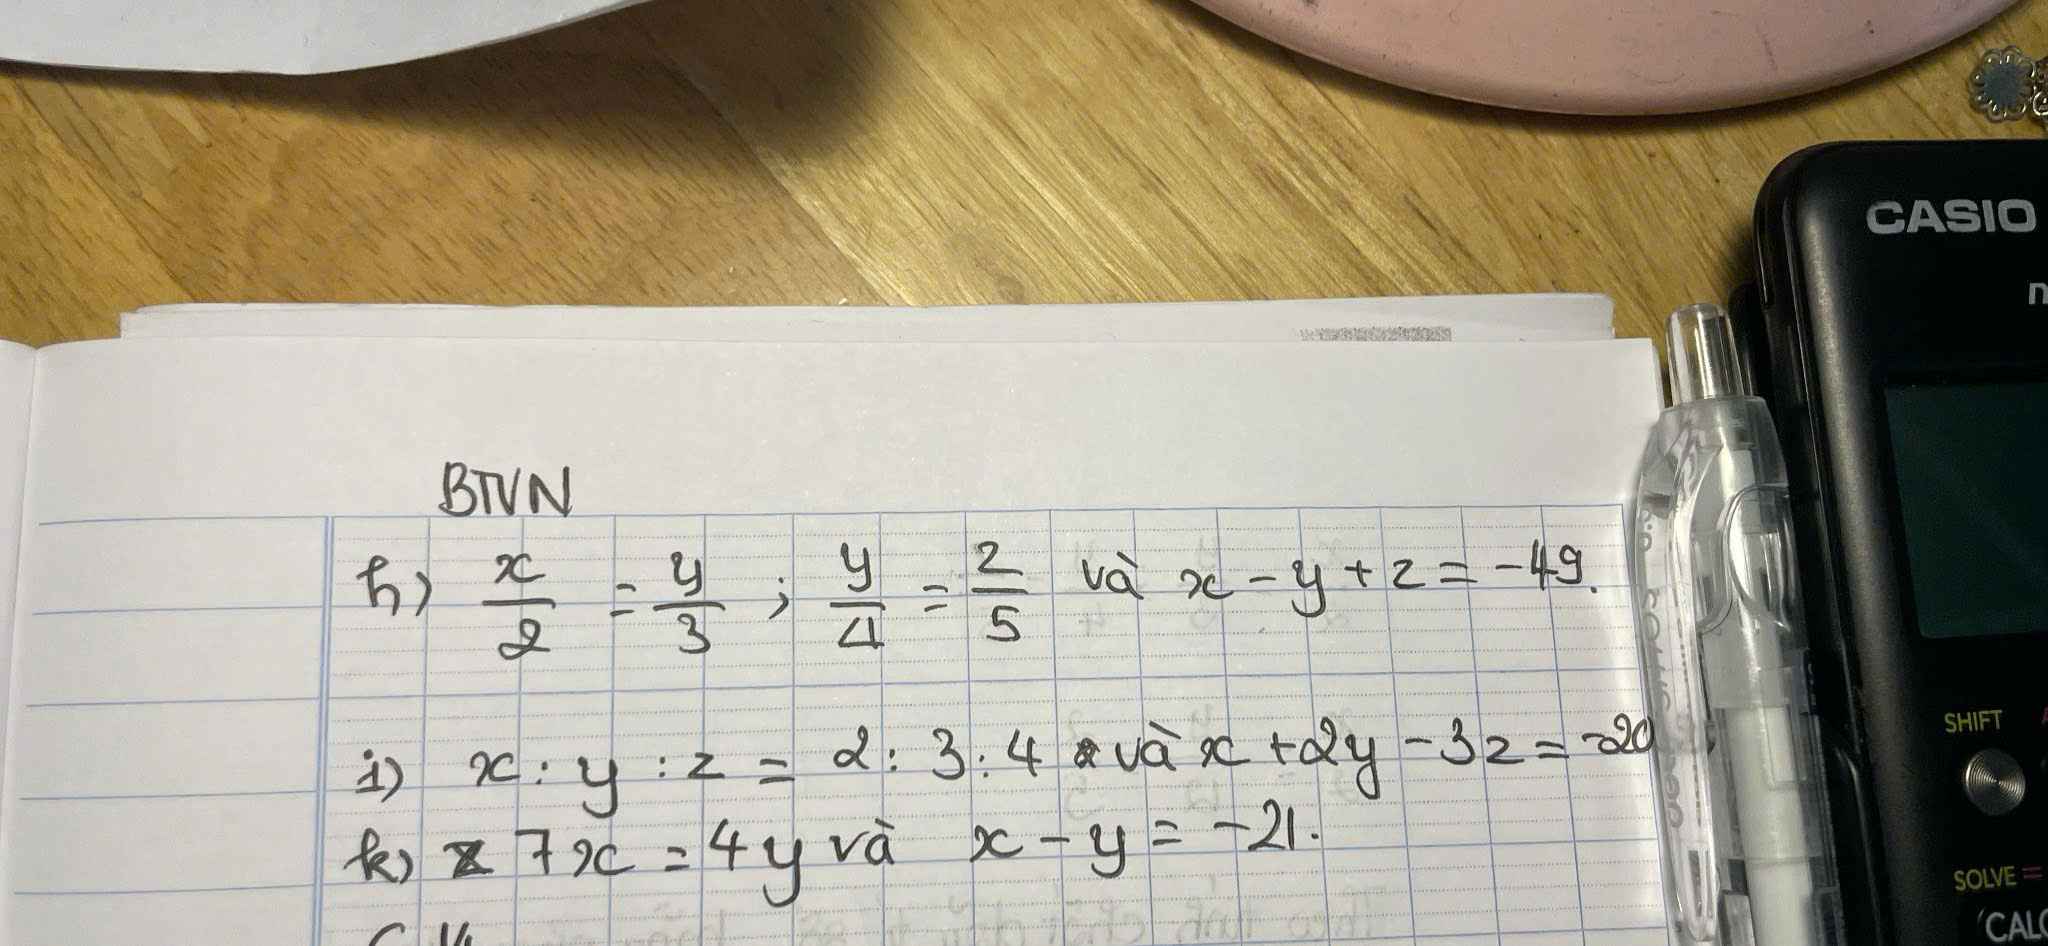 BTVN
h) x/2 = y/3 ; y/4 = z/5 và x - y + z = -49.
i) x : y : z = 2 : 3 : 4 và x + 2y - 3z = -20
k) 7x = 4y và x - y = -21.
CASIO
SHIFT
SOLVE =
CALC